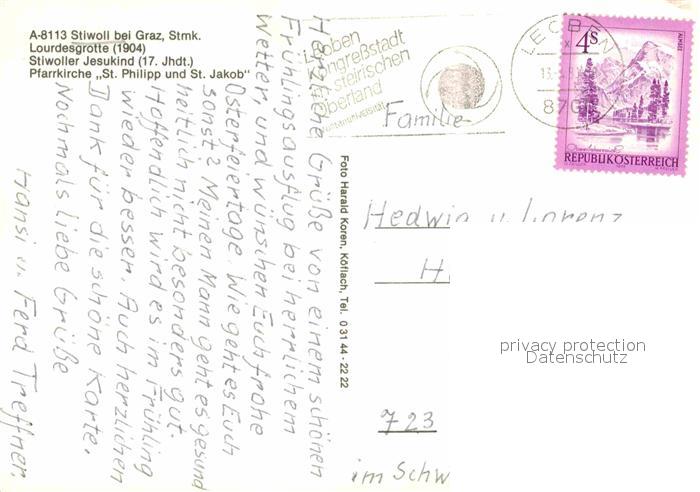 A-8113 Stiwoll bei Graz, Stmk.
Lourdesgrotte (1904)
Stiwoller Jesukind (17. Jhdt.)
Pfarrkirche „St. Philipp und St. Jakob"
Herzliche Grüße von einem schönen
Frühlingsausflug bei herrlichem
Wetter, und wünschen Euch frohe
Osterfeiertage. Wie geht es Euch
sonst? Meinen Mann geht es gesund
heitlich nicht besonders gut.
Hoffendlich wird es im Frühling
wieder besser. Auch herzlichen
Dank für die schöne Karte.
Nochmals liebe Grüße
Hansi u. Ferd Treffner.
Foto Harald Koren, Köflach, Tel. 0 31 44 - 22 22
Leoben
Kongreßstadt
steirischen
Oberland
LEOBEN
870
4S
ALMSEE
REPUBLIK ÖSTERREICH
Familie
Hedwig u. Lorenz
H
privacy protection
Datenschutz
723
im Schw